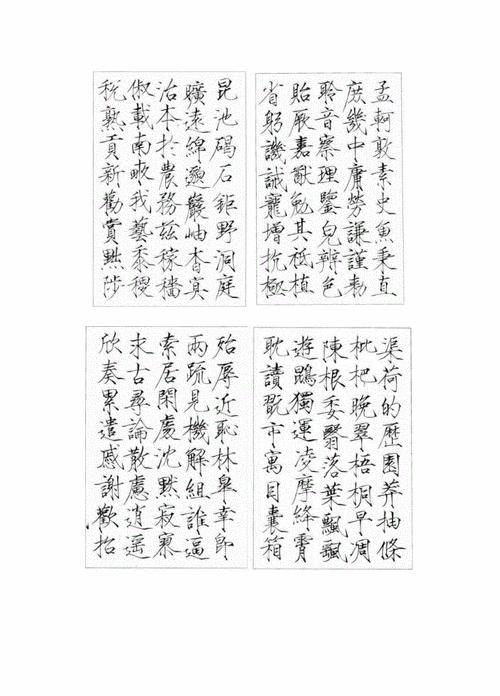 昆池碣石鉅野洞庭
曠遠綿邈巖岫杳冥
治本於農務茲稼穡
俶載南畝我藝黍稷
稅熟貢新勸賞黜陟
孟軻敦素史魚秉直
庶幾中庸勞謙謹勅
聆音察理鑒皃辨色
貽厥嘉猷勉其祗植
省躬譏誡寵增抗極
殆辱近恥林皋幸即
兩疏見機解組誰逼
索居閑處沈默寂寥
求古尋論散慮逍遥
欣奏累遣慼謝歡招
渠荷的歷園莽抽條
枇杷晚翠梧桐早凋
陳根委翳落葉飄颻
遊鵾獨運凌摩絳霄
耽讀翫市寓目囊箱